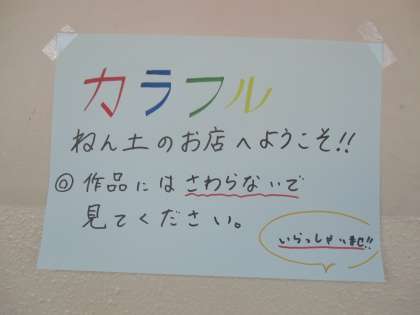 カラフル
ねん土のお店へようこそ!!
◎作品にはさわらないで
見てください。
いらっしゃいませ!!